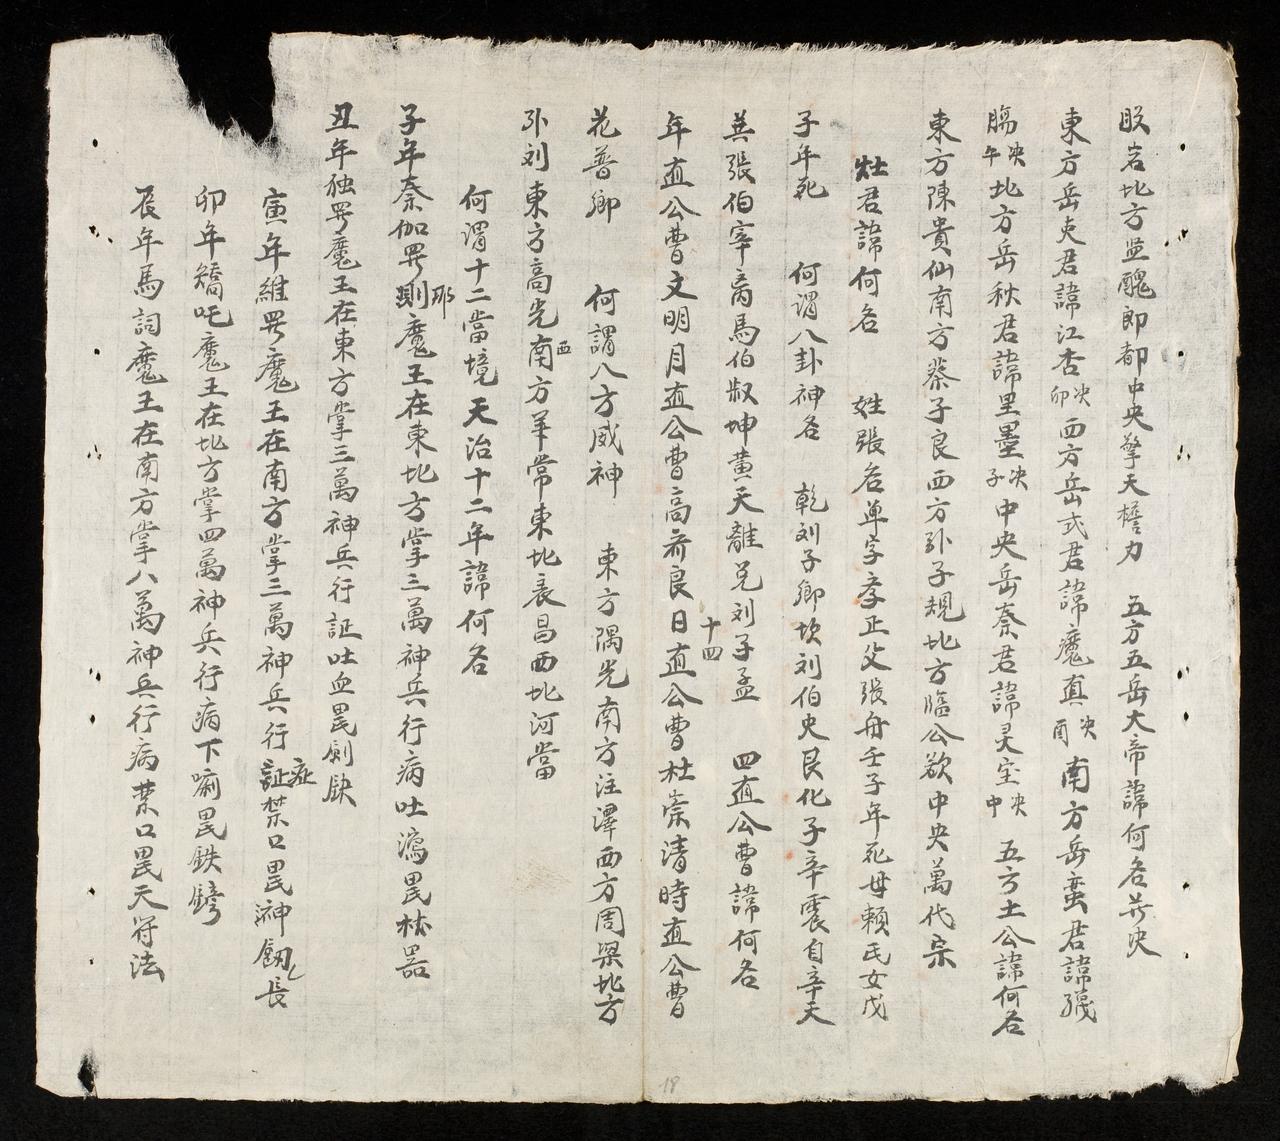 股岩北方显醜即都中央擎天檐力　五方五岳大帝諱何名并决
東方岳吏君諱江杏卯决西方岳式君諱魔真酉决南方岳蛮君諱
腸午决北方岳秋君諱里墨子决中央岳奈君諱灵宝中决　五方土公諱何名
東方陳貴仙南方蔡子良西方孙子規北方臨公欲中央萬代宗
灶君諱何名　姓張名单字孝正父張舟壬子年死母賴氏女戊
子年死　何謂八卦神名　乾刘子卿坎刘伯史艮化子辛震自辛天
巽張伯宰离馬伯叔坤黄天離兑刘子孟　四直公曹諱何名
年直公曹文明月直公曹高齐良日直公曹杜崇清時直公曹
十四
花普卿　何謂八方威神　東方隅光南方注澤西方周梁北方
孙刘東方高光南西方羊常東北表昌西北河當
何謂十二當境天治十二年諱何名
子年奈伽哭則那魔王在東北方掌三萬神兵行病吐瀉毘林器
丑年独哭魔王在東方掌三萬神兵行証吐血毘劍鈌
寅年維哭魔王在南方掌三萬神兵行証症禁口毘神劔長
卯年矯吒魔王在北方掌四萬神兵行病下痢毘鉄鏘
辰年馬詞魔王在南方掌八萬神兵行病禁口毘天符法
18